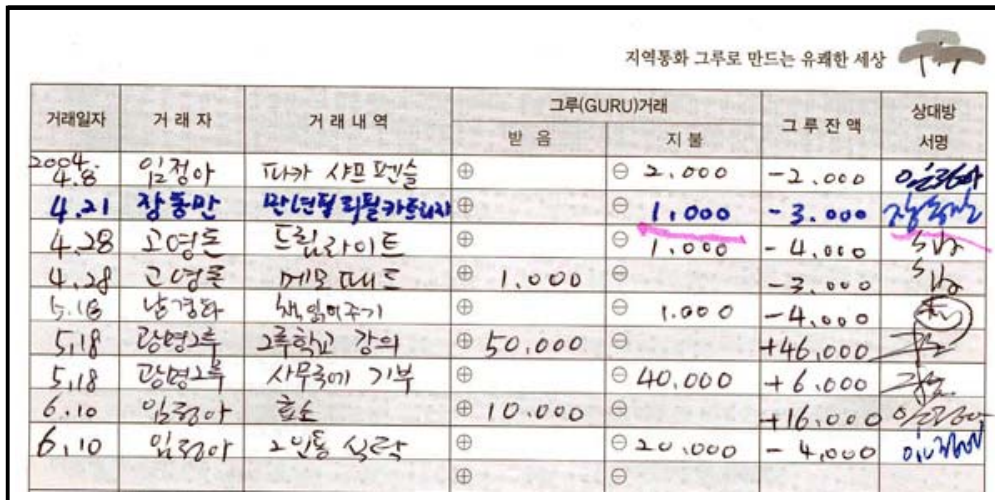 지역통화 그루로 만드는 유쾌한 세상
거래일자 거 래 자 거 래 내 역 그루(GURU)거래 그 루 잔 액 상대방 서명
받 음 지 불
2004.
4.8 임정아 파카 샤프펜슬 ⊕ ⊖ 2.000 -2.000 임정아
4.21 장동만 만년필 리필카트리지 ⊕ ⊖ 1,000 -3.000
4.28 고영돈 드립라이트 ⊕ ⊖ 1.000 -4.000
4.28 고영돈 메모패드 ⊕ 1.000 ⊖ -3.000
5.18 남경화 책읽어주기 ⊕ ⊖ 1.000 -4.000
5.18 광명그루 그루학교 강의 ⊕ 50.000 ⊖ +46.000
5.18 광명그루 사무국에 기부 ⊕ ⊖ 40.000 +6.000
6.10 임정아 효소 ⊕ 10.000 ⊖ +16.000 임정아
6.10 임정아 2인용 식탁 ⊕ ⊖ 20.000 -4,000 임정아
⊕ ⊖